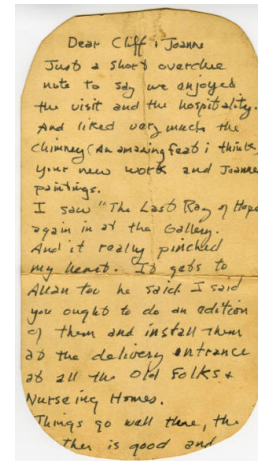 Dear Cliff & Joanne
Just a short overdue
note to say we enjoyed
the visit and the hospitality.
And liked very much the
Chimney (An amazing feat i think)
your new work and Joanne
paintings.
I saw "The Last Ray of Hope
again in at the Gallery.
And it really pinched
my heart. It gets to
Allan too he said. I said
you ought to do an edition
of them and install them
at the delivery entrance
at all the Old Folks &
Nurseing Homes.
Things go well there, the
ther is good and